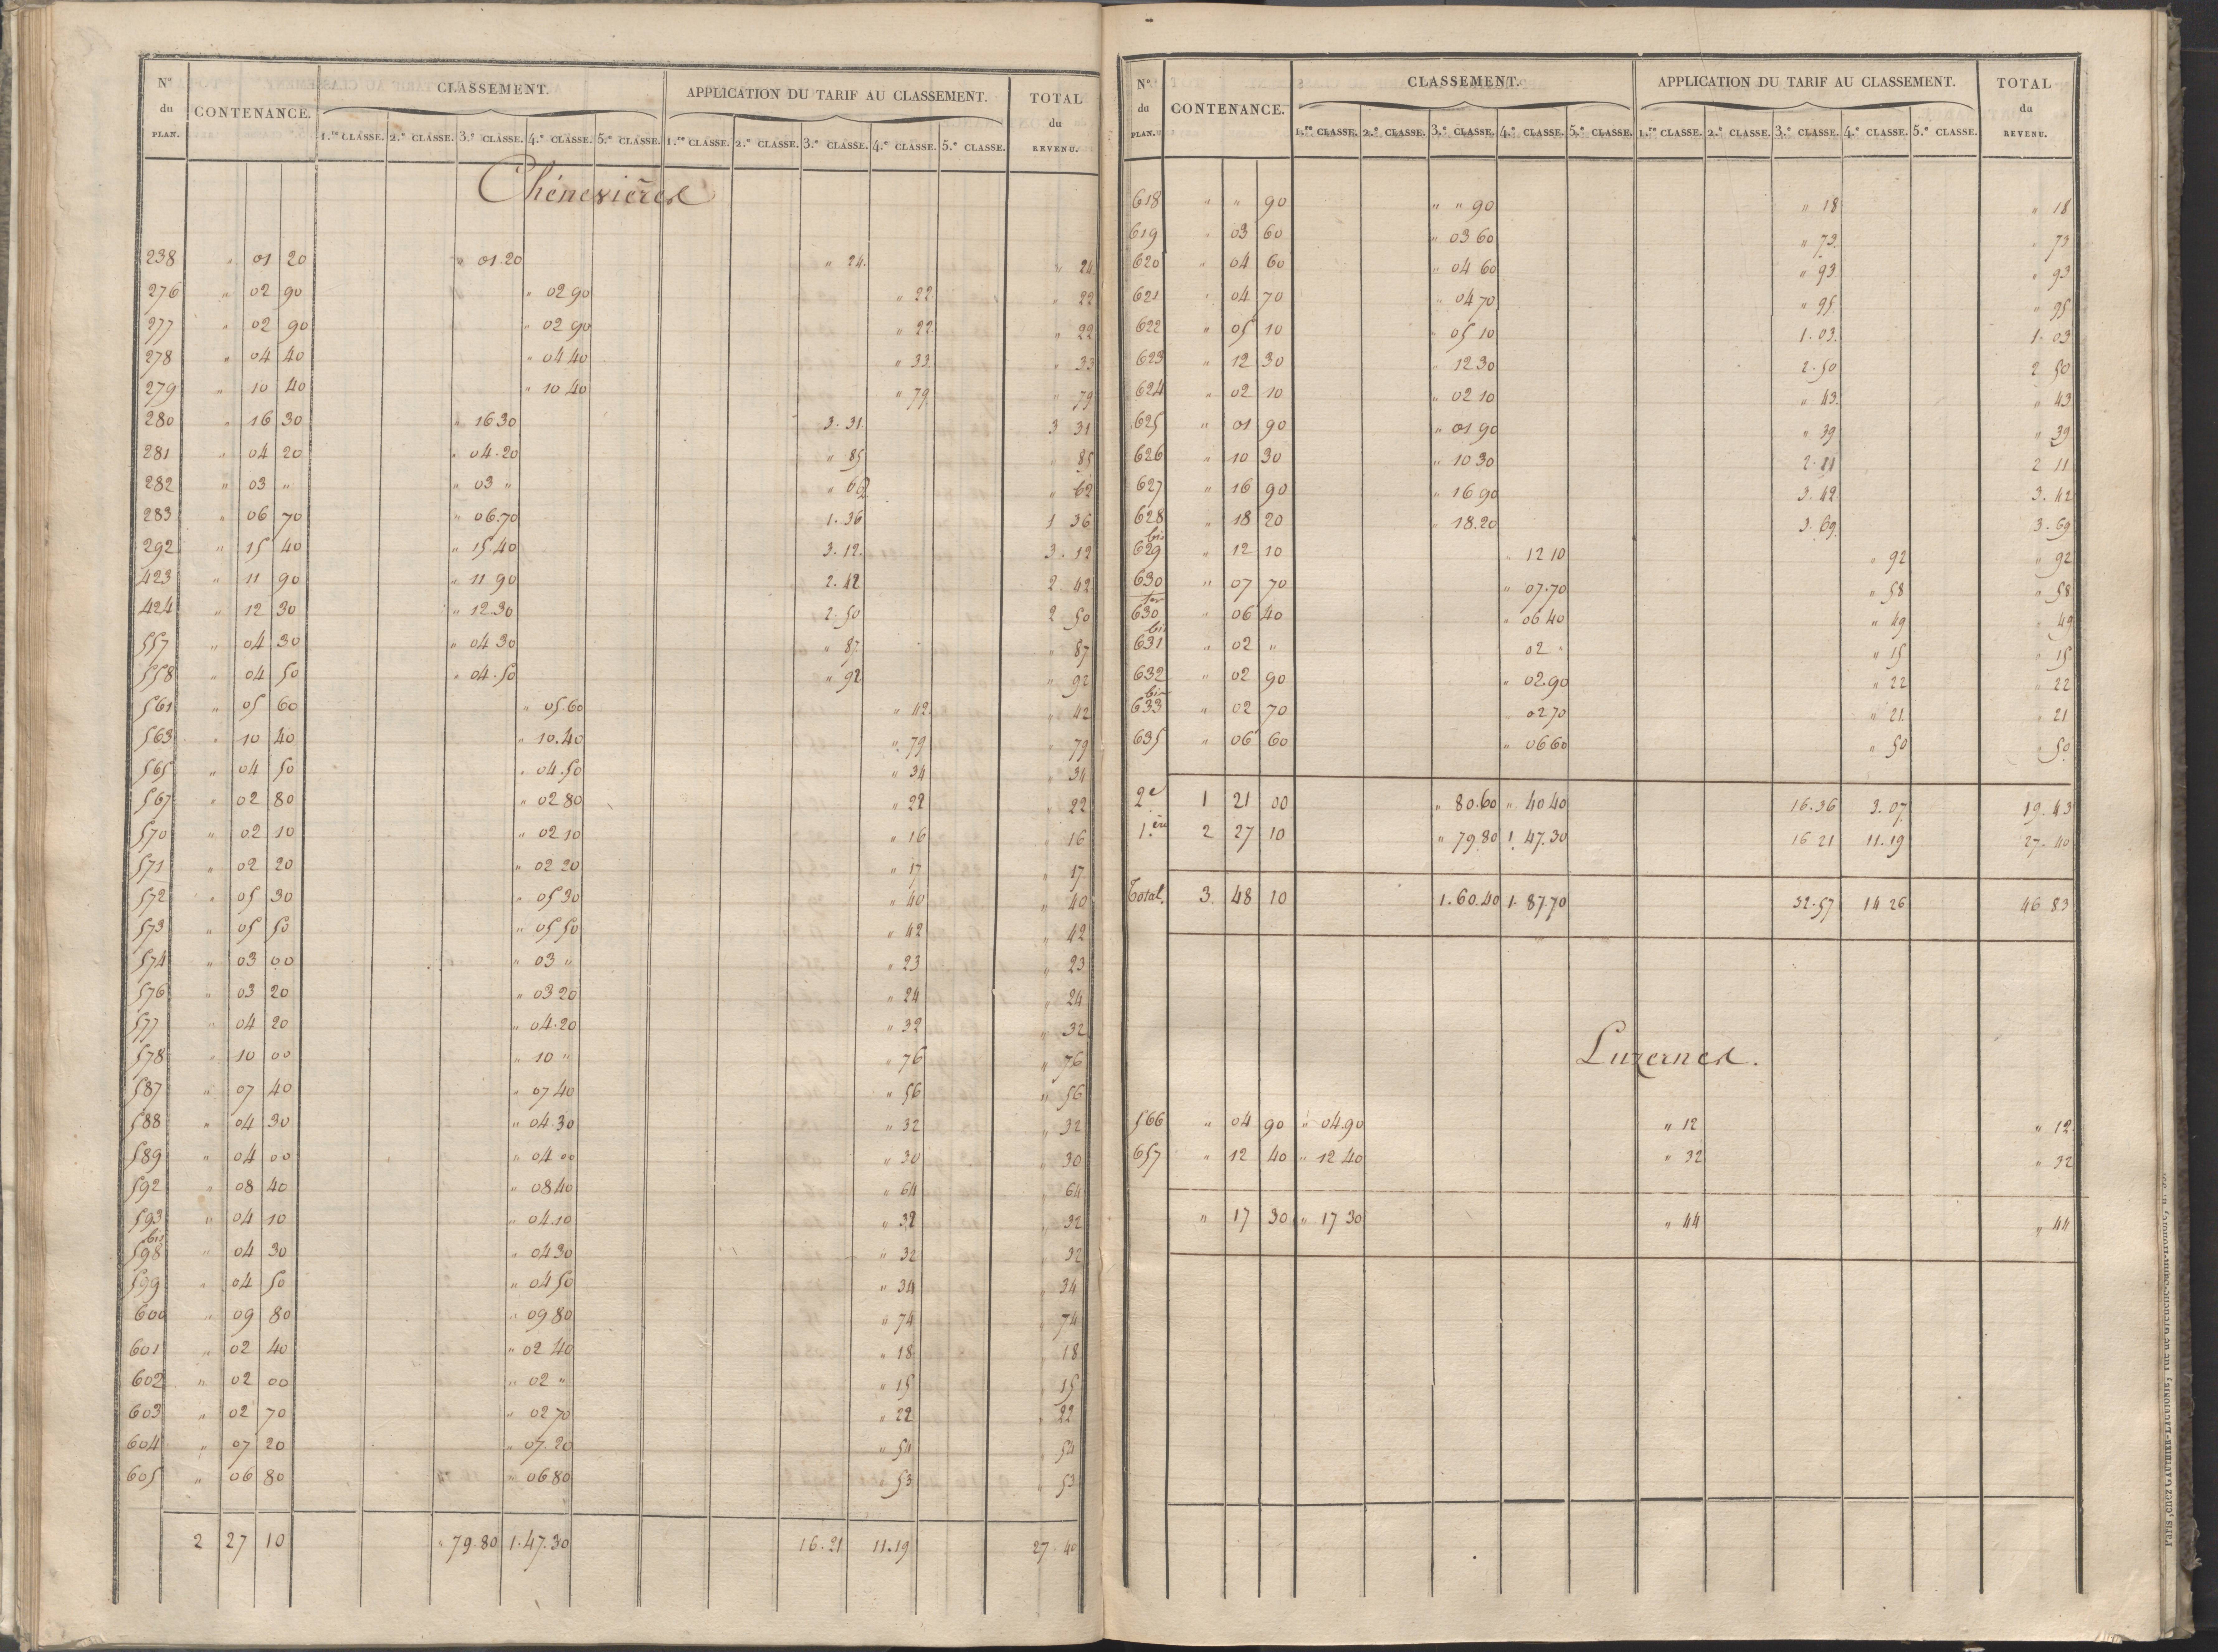 N.º du PLAN. CONTENANCE. CLASSEMENT. APPLICATION DU TARIF AU CLASSEMENT. TOTAL du REVENU.
1.re CLASSE. 2.e CLASSE. 3.e CLASSE. 4.e CLASSE. 5.e CLASSE. 1.re CLASSE. 2.e CLASSE. 3.e CLASSE. 4.e CLASSE. 5.e CLASSE.
Chénevières
238 " 01 20 " 01.20 " 24. " 24
276 " 02 90 " 02 90 " 22 " 22
277 " 02 90 " 02 90 " 22 " 22
278 " 04 40 " 04 40 " 33 " 33
279 " 10 40 " 10 40 " 79 " 79
280 " 16 30 " 16 30 3. 31. 3 31
281 " 04 20 " 04.20 " 85 " 85
282 " 03 " " 03 " " 62 " 62
283 " 06 70 " 06.70 1. 36 1 36
292 " 15 40 " 15.40 3. 12. 3. 12
423 " 11 90 " 11 90 2. 42 2 42
424 " 12 30 " 12.30 2. 50 2 50
557 " 04 30 " 04 30 " 87 " 87
558 " 04 50 " 04.50 " 92 " 92
561 " 05 60 " 05.60 " 42 " 42
563 " 10 40 " 10.40 " 79 " 79
565 " 04 50 " 04.50 " 34 " 34
567 " 02 80 " 02 80 " 22 " 22
570 " 02 10 " 02 10 " 16 " 16
571 " 02 20 " 02 20 " 17 " 17
572 " 05 30 " 05 30 " 40 " 40
573 " 05 50 " 05 50 " 42 " 42
574 " 03 00 " 03 " " 23 " 23
576 " 03 20 " 03 20 " 24 " 24
577 " 04 20 " 04.20 " 32 " 32
578 " 10 00 " 10 " " 76 " 76
587 " 07 40 " 07 40 " 56 " 56
588 " 04 30 " 04.30 " 32 " 32
589 " 04 00 " 04 00 " 30 " 30
592 " 08 40 " 08 40 " 64 " 64
593 " 04 10 " 04.10 " 32 " 32
598 bis " 04 30 " 04 30 " 32 " 32
599 " 04 50 " 04 50 " 34 " 34
600 " 09 80 " 09 80 " 74 " 74
601 " 02 40 " 02 40 " 18 " 18
602 " 02 00 " 02 " " 15 " 15
603 " 02 70 " 02 70 " 22 " 22
604 " 07 20 " 07.20 " 54 " 54
605 " 06 80 " 06.80 " 53 " 53
2 27 10 " 79.80 1.47.30 16.21 11.19 27.40
N.º du PLAN. CONTENANCE. CLASSEMENT. APPLICATION DU TARIF AU CLASSEMENT. TOTAL du REVENU.
1.re CLASSE. 2.e CLASSE. 3.e CLASSE. 4.e CLASSE. 5.e CLASSE. 1.re CLASSE. 2.e CLASSE. 3.e CLASSE. 4.e CLASSE. 5.e CLASSE.
618 " " 90 " " 90 " 18 " 18
619 " 03 60 " 03 60 " 73. " 73
620 " 04 60 " 04 60 " 93 " 93
621 " 04 70 " 04 70 " 95. " 95
622 " 05 10 " 05 10 1. 03. 1. 03
623 " 12 30 " 12 30 2. 50 2 50
624 " 02 10 " 02 10 " 43. " 43
625 " 01 90 " 01 90 " 39 " 39
626 " 10 30 " 10 30 2. 11 2 11
627 " 16 90 " 16 90 3. 42 3. 42
628 " 18 20 " 18.20 3. 69. 3. 69
629 bis " 12 10 " 12 10 " 92 " 92
630 " 07 70 " 07.70 " 58 " 58
630 ter " 06 40 " 06 40 " 49 " 49
631 bis " 02 " 02 " " 15 " 15
632 " 02 90 " 02.90 " 22 " 22
633 bis " 02 70 " 02 70 " 21. " 21
635 " 06 60 " 06 60 " 50 " 50
2e 1 21 00 " 80.60 " 40 40 16.36 3. 07 19. 43
1.ère 2 27 10 " 79.80 1. 47.30 16 21 11.19 27. 40
Total. 3. 48 10 1.60.40 1. 87.70 32.57 14 26 46 83
Luzernes.
566 " 04 90 " 04.90 " 12 " 12
657 " 12 40 " 12 40 " 32 " 32
" 17 30 " 17 30 " 44 " 44